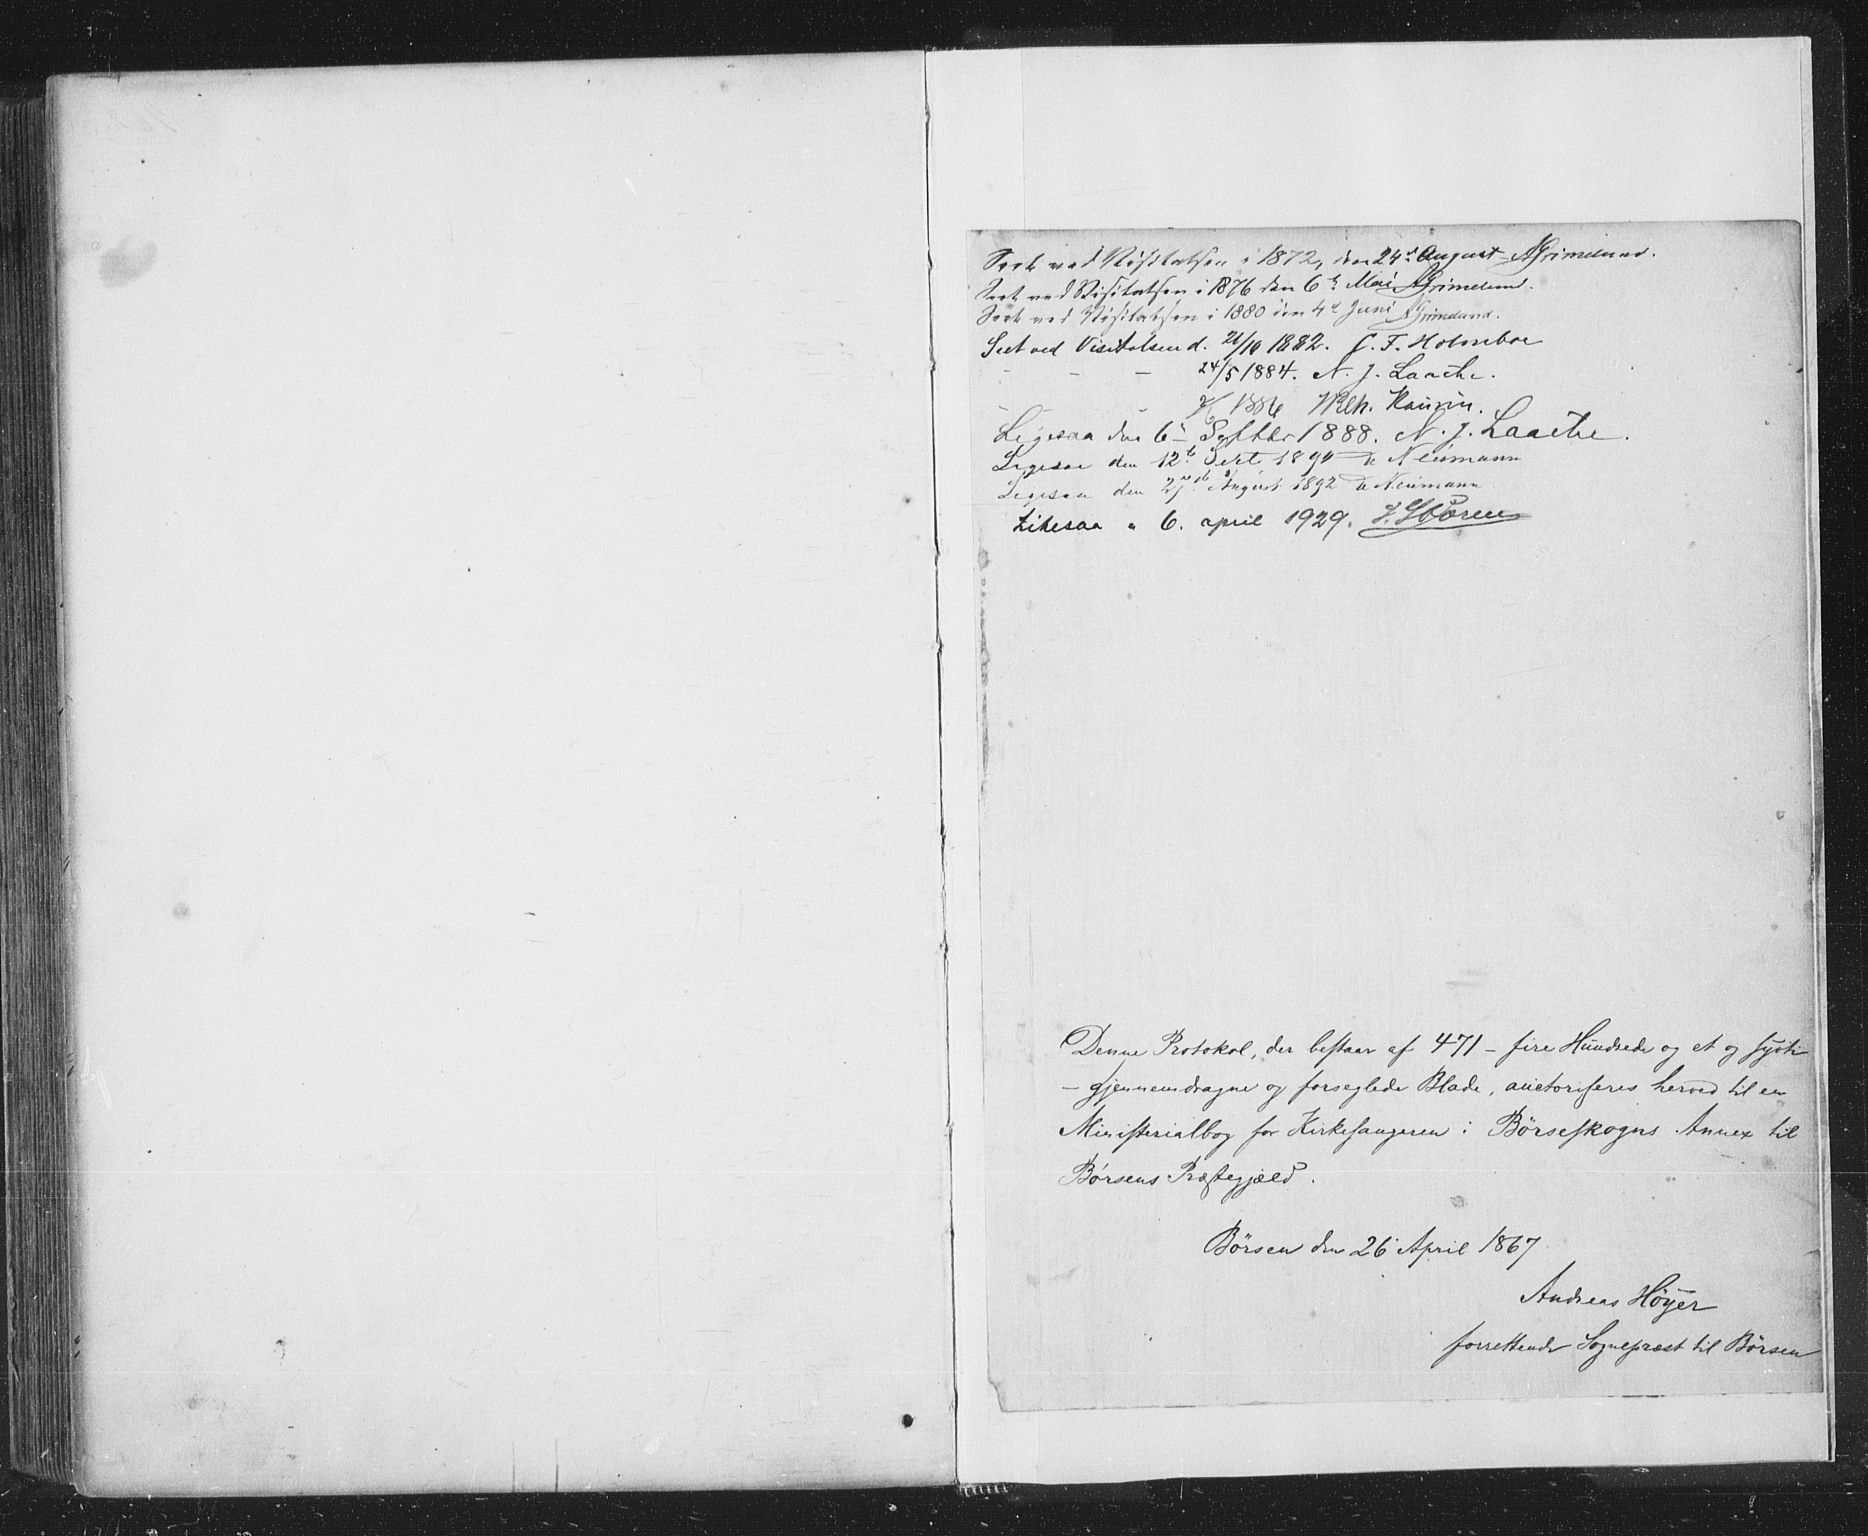 Seet ved Visitatsen i 1872, den 24de August AGrimelund.
Seet ved Visitatsen i 1876 den 6te Mai AGrimelund.
Seet ved Visitatsen i 1880 den 4de Juni AGrimelund.
Seet ved Visitatsen d. 21/10 1882. C. F. Holmboe
- - - 24/5 1884. N. J. Laache.
1886 Wilh. Haurin.
Ligesaa den 6te Septbr 1888. N. J. Laache.
Ligesaa den 12te Sept 1890 Neumann
Ligesaa den August 1892 Neumann
Likesaa " 6. april 1929. J. Støren
Denne Protokol, der bestaar af 471 - fire Hundrede og et og sytti
- gjennemdragne og forseglede Blade, auctoriseres herved til en
Ministerialbog for Kirkesangeren i Børseskogns Annex til
Børsens Præstegjæld.
Børsen den 26 April 1867
Andreas Høyer
forrettende Sognepræst til Børsen